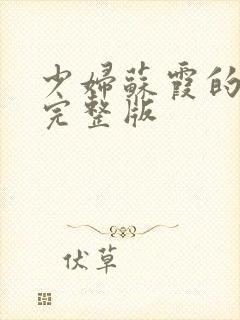 少婦蘇霞的
完整版
伏草